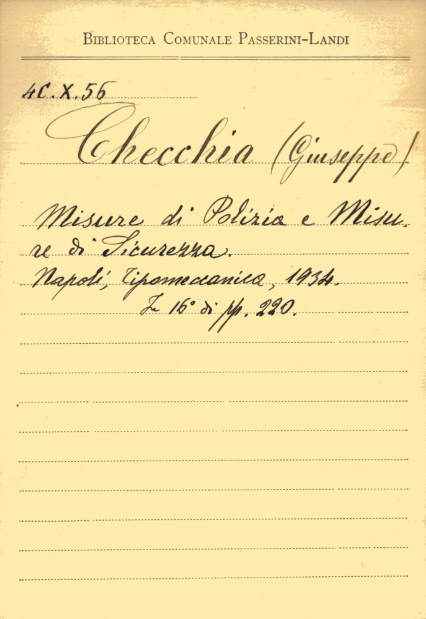 BIBLIOTECA COMUNALE PASSERINI-LANDI
4C.X.56
Checchia (Giuseppe)
Misure di Polizia e Misu-
re di Sicurezza.
Napoli, Tipomeccanica, 1934.
In 16° di pp. 220.